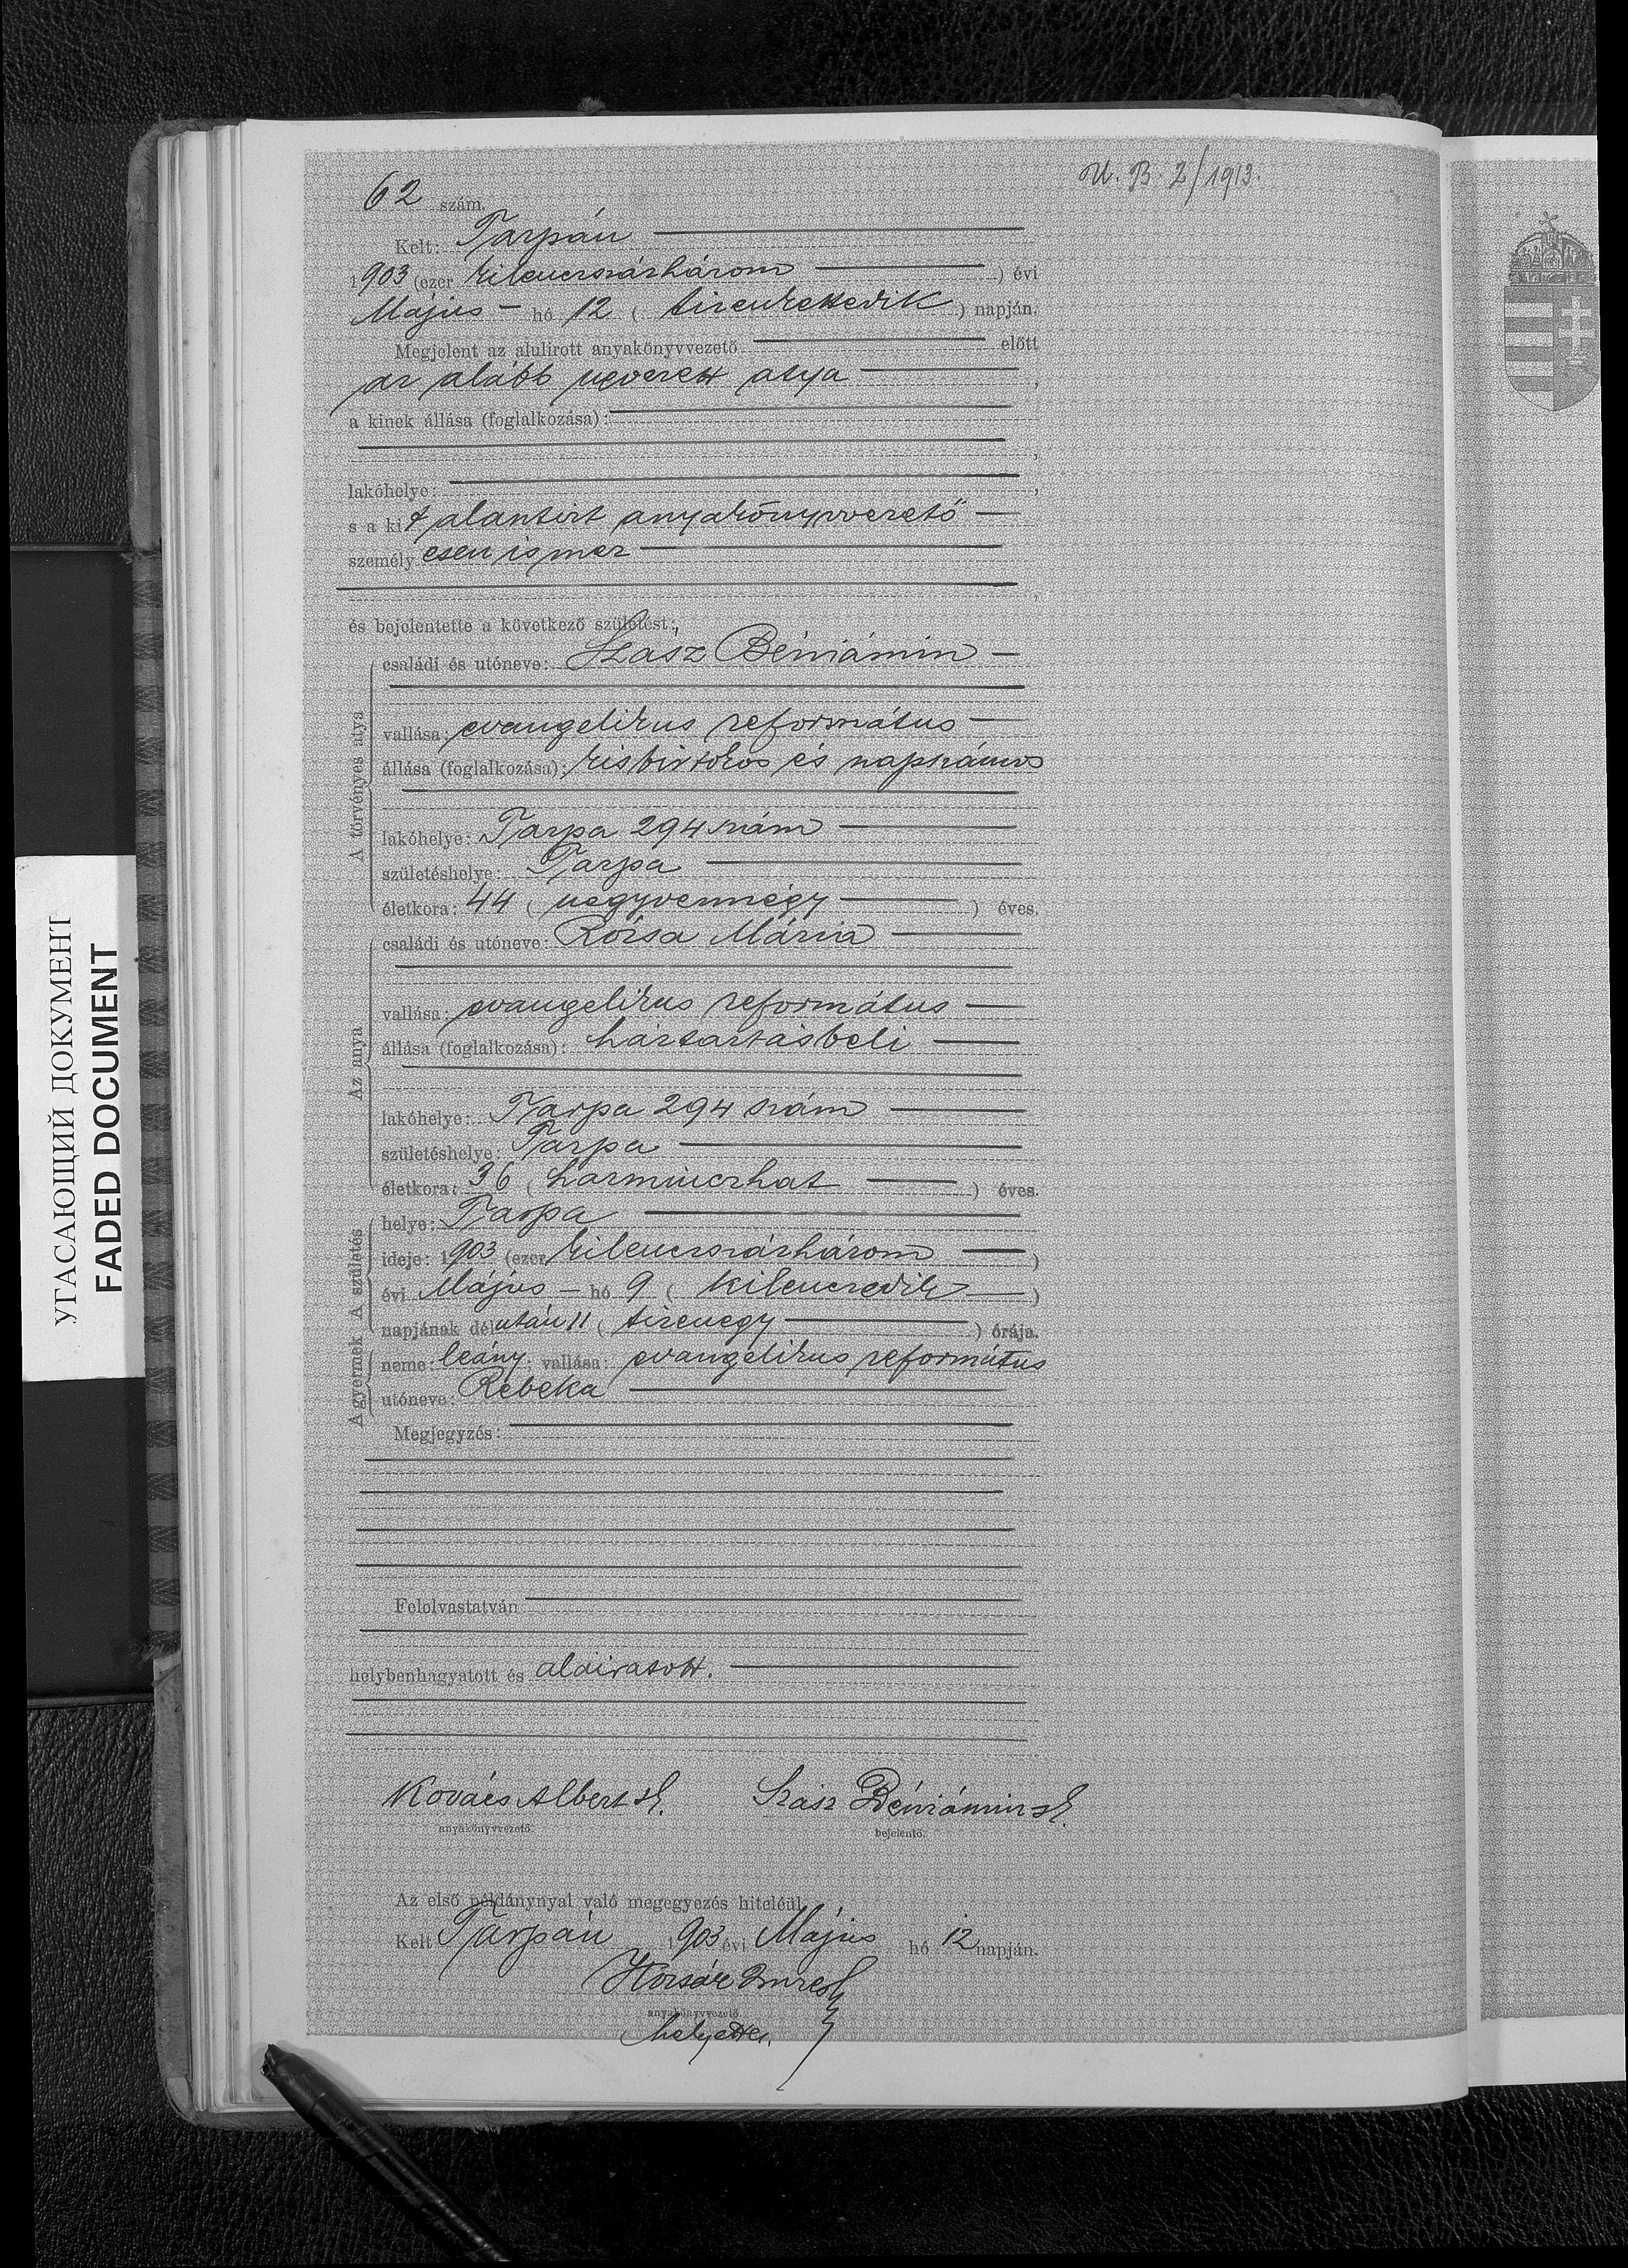 U. B. 2/1913.
62 szám.
Kelt: Tarpán
1903 (ezer kilenczszázhárom) évi
Május hó 12 (tizenkettedik) napján.
Megjelent az alulirott anyakönyvvezető előtt
az alább nevezett atya,
a kinek állása (foglalkozása):
lakóhelye:
s a kit alantirt anyakönyvvezető
személyesen ismer
és bejelentette a következő születést:
A törvényes atya
családi és utóneve: Szász Béniámin
vallása: evangelikus református
állása (foglalkozása): kisbirtokos és napszámos
lakóhelye: Tarpa 294 szám
születéshelye: Tarpa
életkora: 44 (negyvennégy) éves.
Az anya
családi és utóneve: Rózsa Mária
vallása: evangelikus református
állása (foglalkozása): háztartásbeli
lakóhelye: Tarpa 294 szám
születéshelye: Tarpa
életkora: 36 (harminczhat) éves.
A születés
helye: Tarpa
ideje: 1903 (ezer kilenczszázhárom)
évi Május hó 9 (kilenczedik)
napjának délután 11 (tizenegy) órája.
A gyermek
neme: leány; vallása: evangélikus református
utóneve: Rebeka
Megjegyzés:
Felolvastatván
helybenhagyatott és aláiratott.
Kovács Albert sk. Szász Béniámin sk.
anyakönyvvezető. bejelentő.
Az első példánynyal való megegyezés hiteléül
Kelt Tarpán 1903 évi Május hó 12 napján.
Imre
anyakönyvvezető
helyettes.
УГАСАЮЩИЙ ДОКУМЕНТ
FADED DOCUMENT